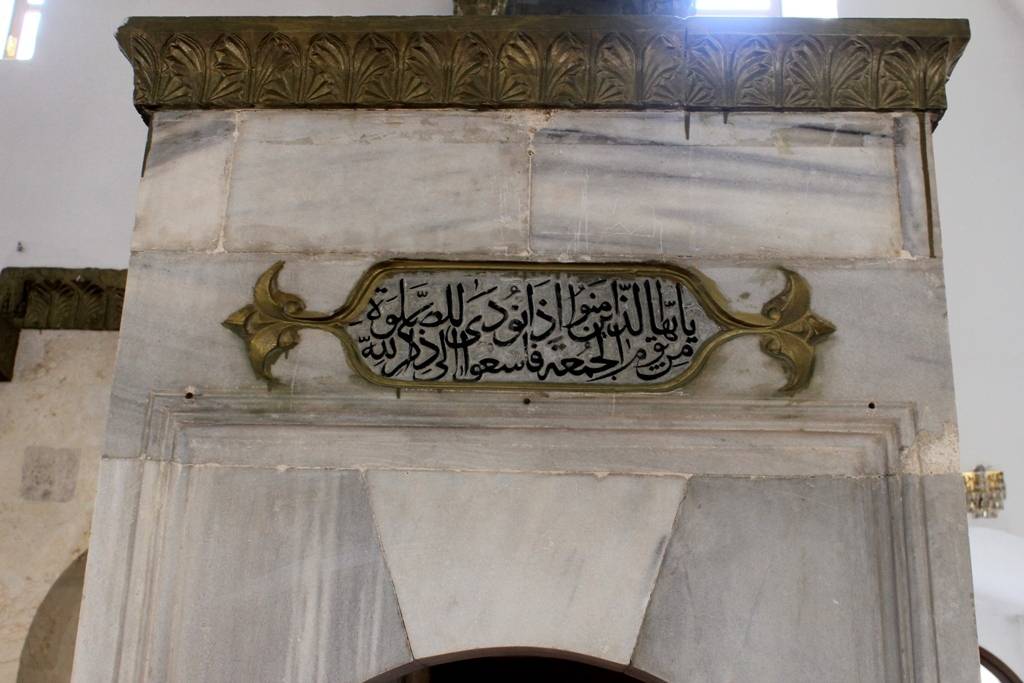 يا ايها الذين امنوا اذا نُودى للصَّلوة
من يوم الجُمعة فاسعوا الى ذكر الله